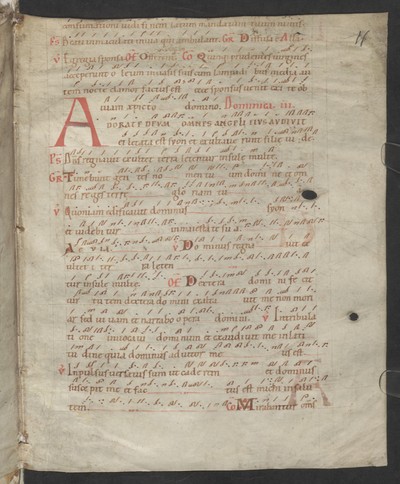 Ps Beati inmaculati in via qui ambulant. GR Diffusa
V Egregia sponsi OF Offerentur CO Quinque prudentes virgines
acceperunt oleum in vasis suis cum lampadibus media au
tem nocte clamor factus est ecce sponsus venit exite ob
viam xpicto domino. Dominica iii
ADORATE DEUM OMNES ANGELI EIUS AUDIVIT
et letata est syon et exultave runt filie iu de.
Ps Dns regnavit exultet terra letentur insule multe.
GR Timebunt gen tes no men tu um domine et om
nes reges terre glo riam tu
V Quoniam edificavit dominus syon
et videbitur in maiestate sua.
Alleluia V Dominus regna vit ex
ultet ter ra leten
tur insule multe. OF Dextera domini fe cit
vir tu tem dextera domini exalta vit me non mori
ar sed vivam et narrabo opera domini. V In tribula
ti one invocavi dominum et exaudivit me in lati
tudine quia dominus adiutor meus est
V Impulsus versatus sum ut caderem et dominus
suscepit me et fac tus est michi in salu
tem CO Mirabantur omnes